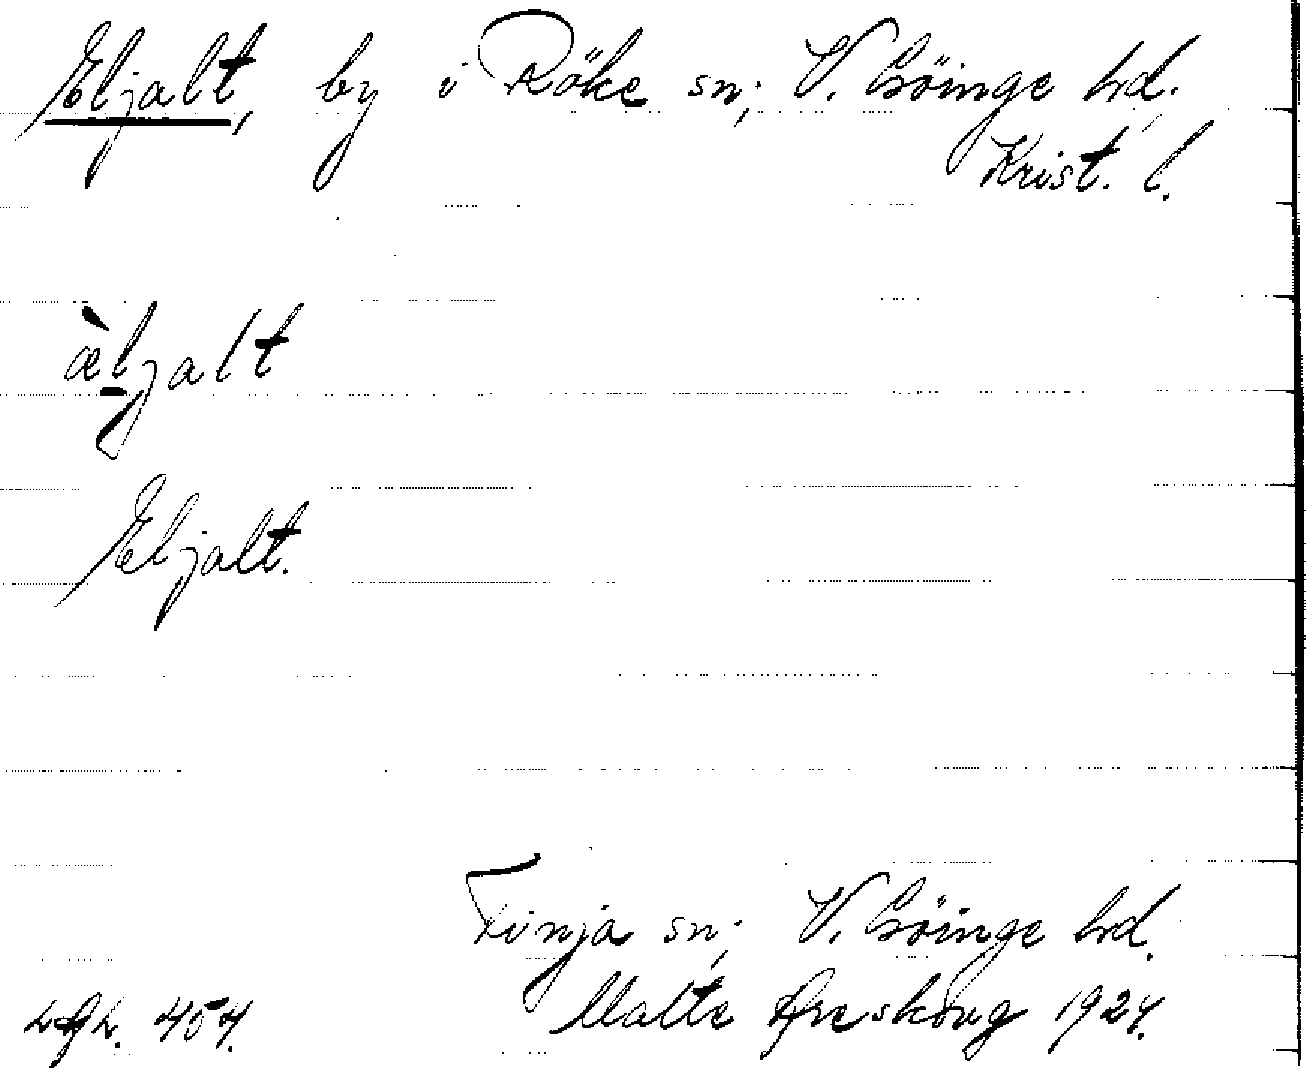 Eljalt, by i Röke sn; V. Göinge hd.
Krist. l.
æ̀ljalt
Eljalt.
Finja sn; V. Göinge hd.
Malte Areskoug 1924.
454.